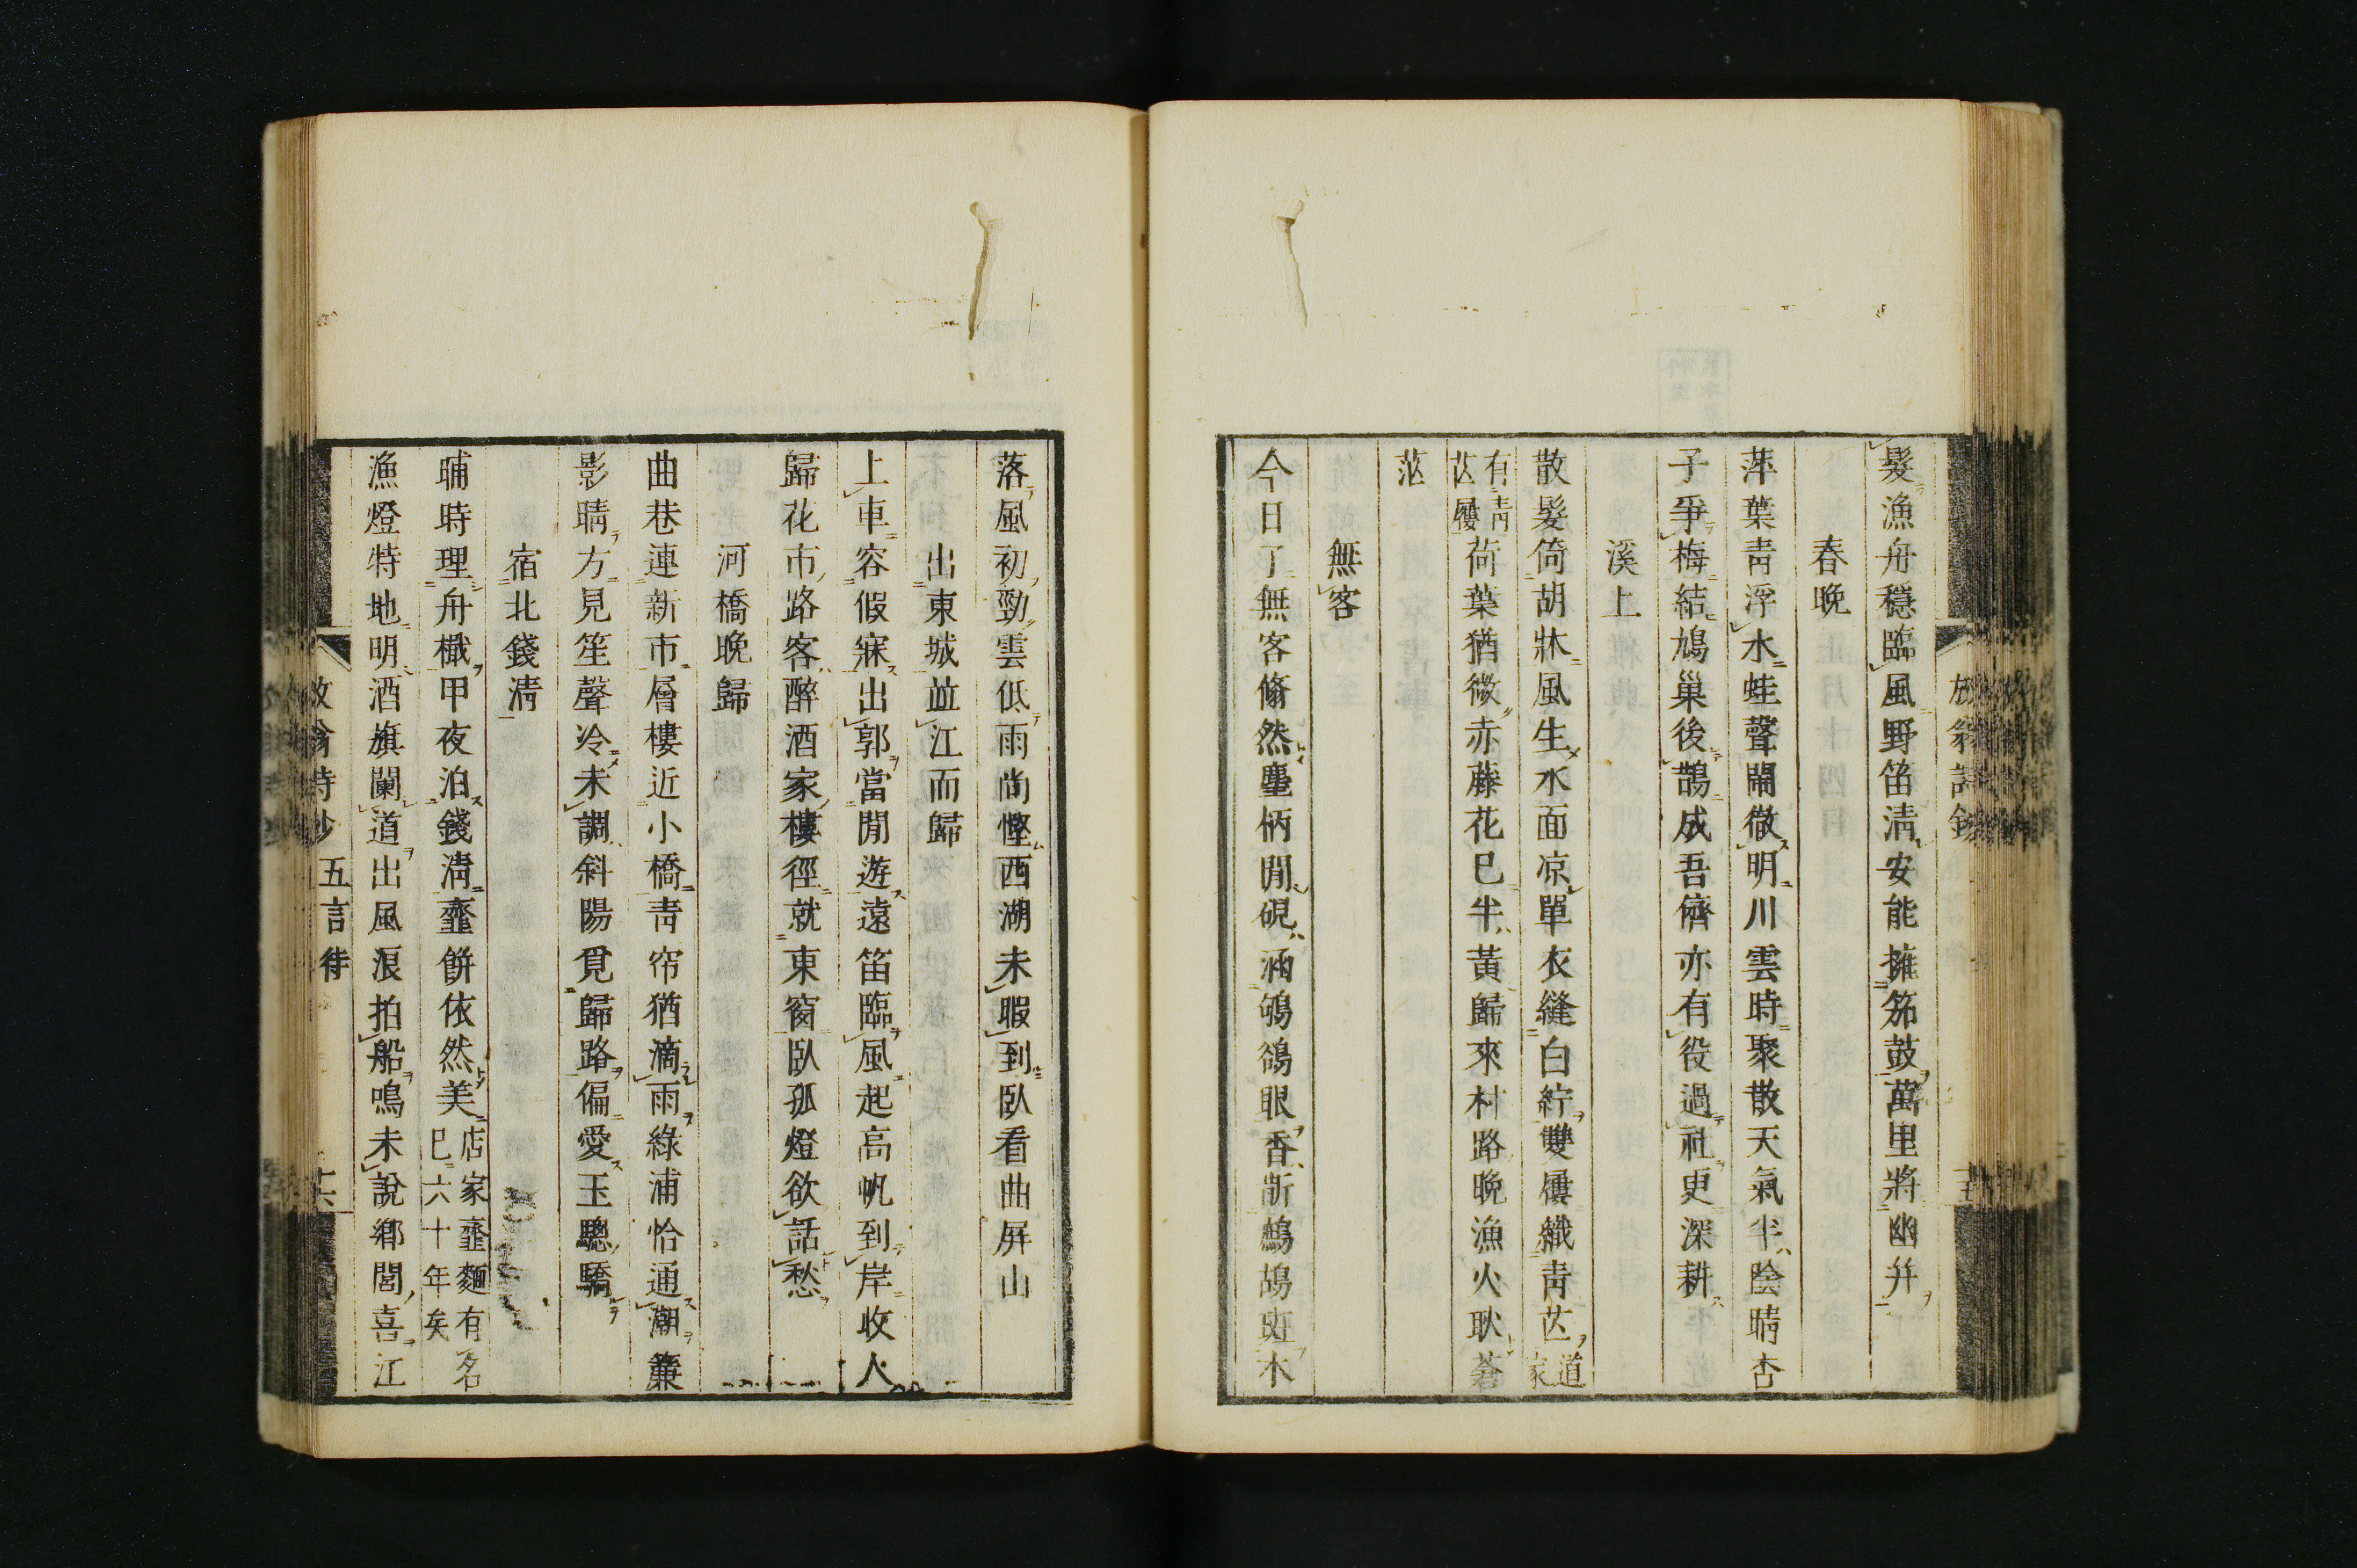 髮漁舟穩臨風野笛淸安能擁笳鼓萬里將幽幷
春晚
萍葉靑浮水蛙聲鬧徹明川雲時聚散天氣半陰晴杏
子爭梅結鳩巢後鵲成吾儕亦有役過社更深耕
溪上
散髮倚胡牀風生水面凉單衣縫白紵雙屨織靑芒道家
有靑芒屨荷葉猶微赤藤花已半黃歸來村路晚漁火耿蒼
茫
無客
今日了無客翛然麈柄閒硯涵鴝鵒眼香斮鷓鴣斑木
落風初勁雲低雨尙慳西湖未暇到臥看曲屛山
出東城並江而歸
上車容假寐出郭當閒遊遠笛臨風起高帆到岸收人
歸花市路客醉酒家樓徑就東窗臥孤燈欲話愁
河橋晚歸
曲巷連新市層樓近小橋靑帘猶滴雨綠浦恰通潮簾
影晴方見笙聲冷未調斜陽覓歸路偏愛玉驄驕
宿北錢淸
晡時理舟檝甲夜泊錢淸虀餅依然美店家虀麵有名已六十年矣
漁燈特地明酒旗闌道出風浪拍船鳴未說鄕閭喜江
放翁詩鈔
五言律
十六